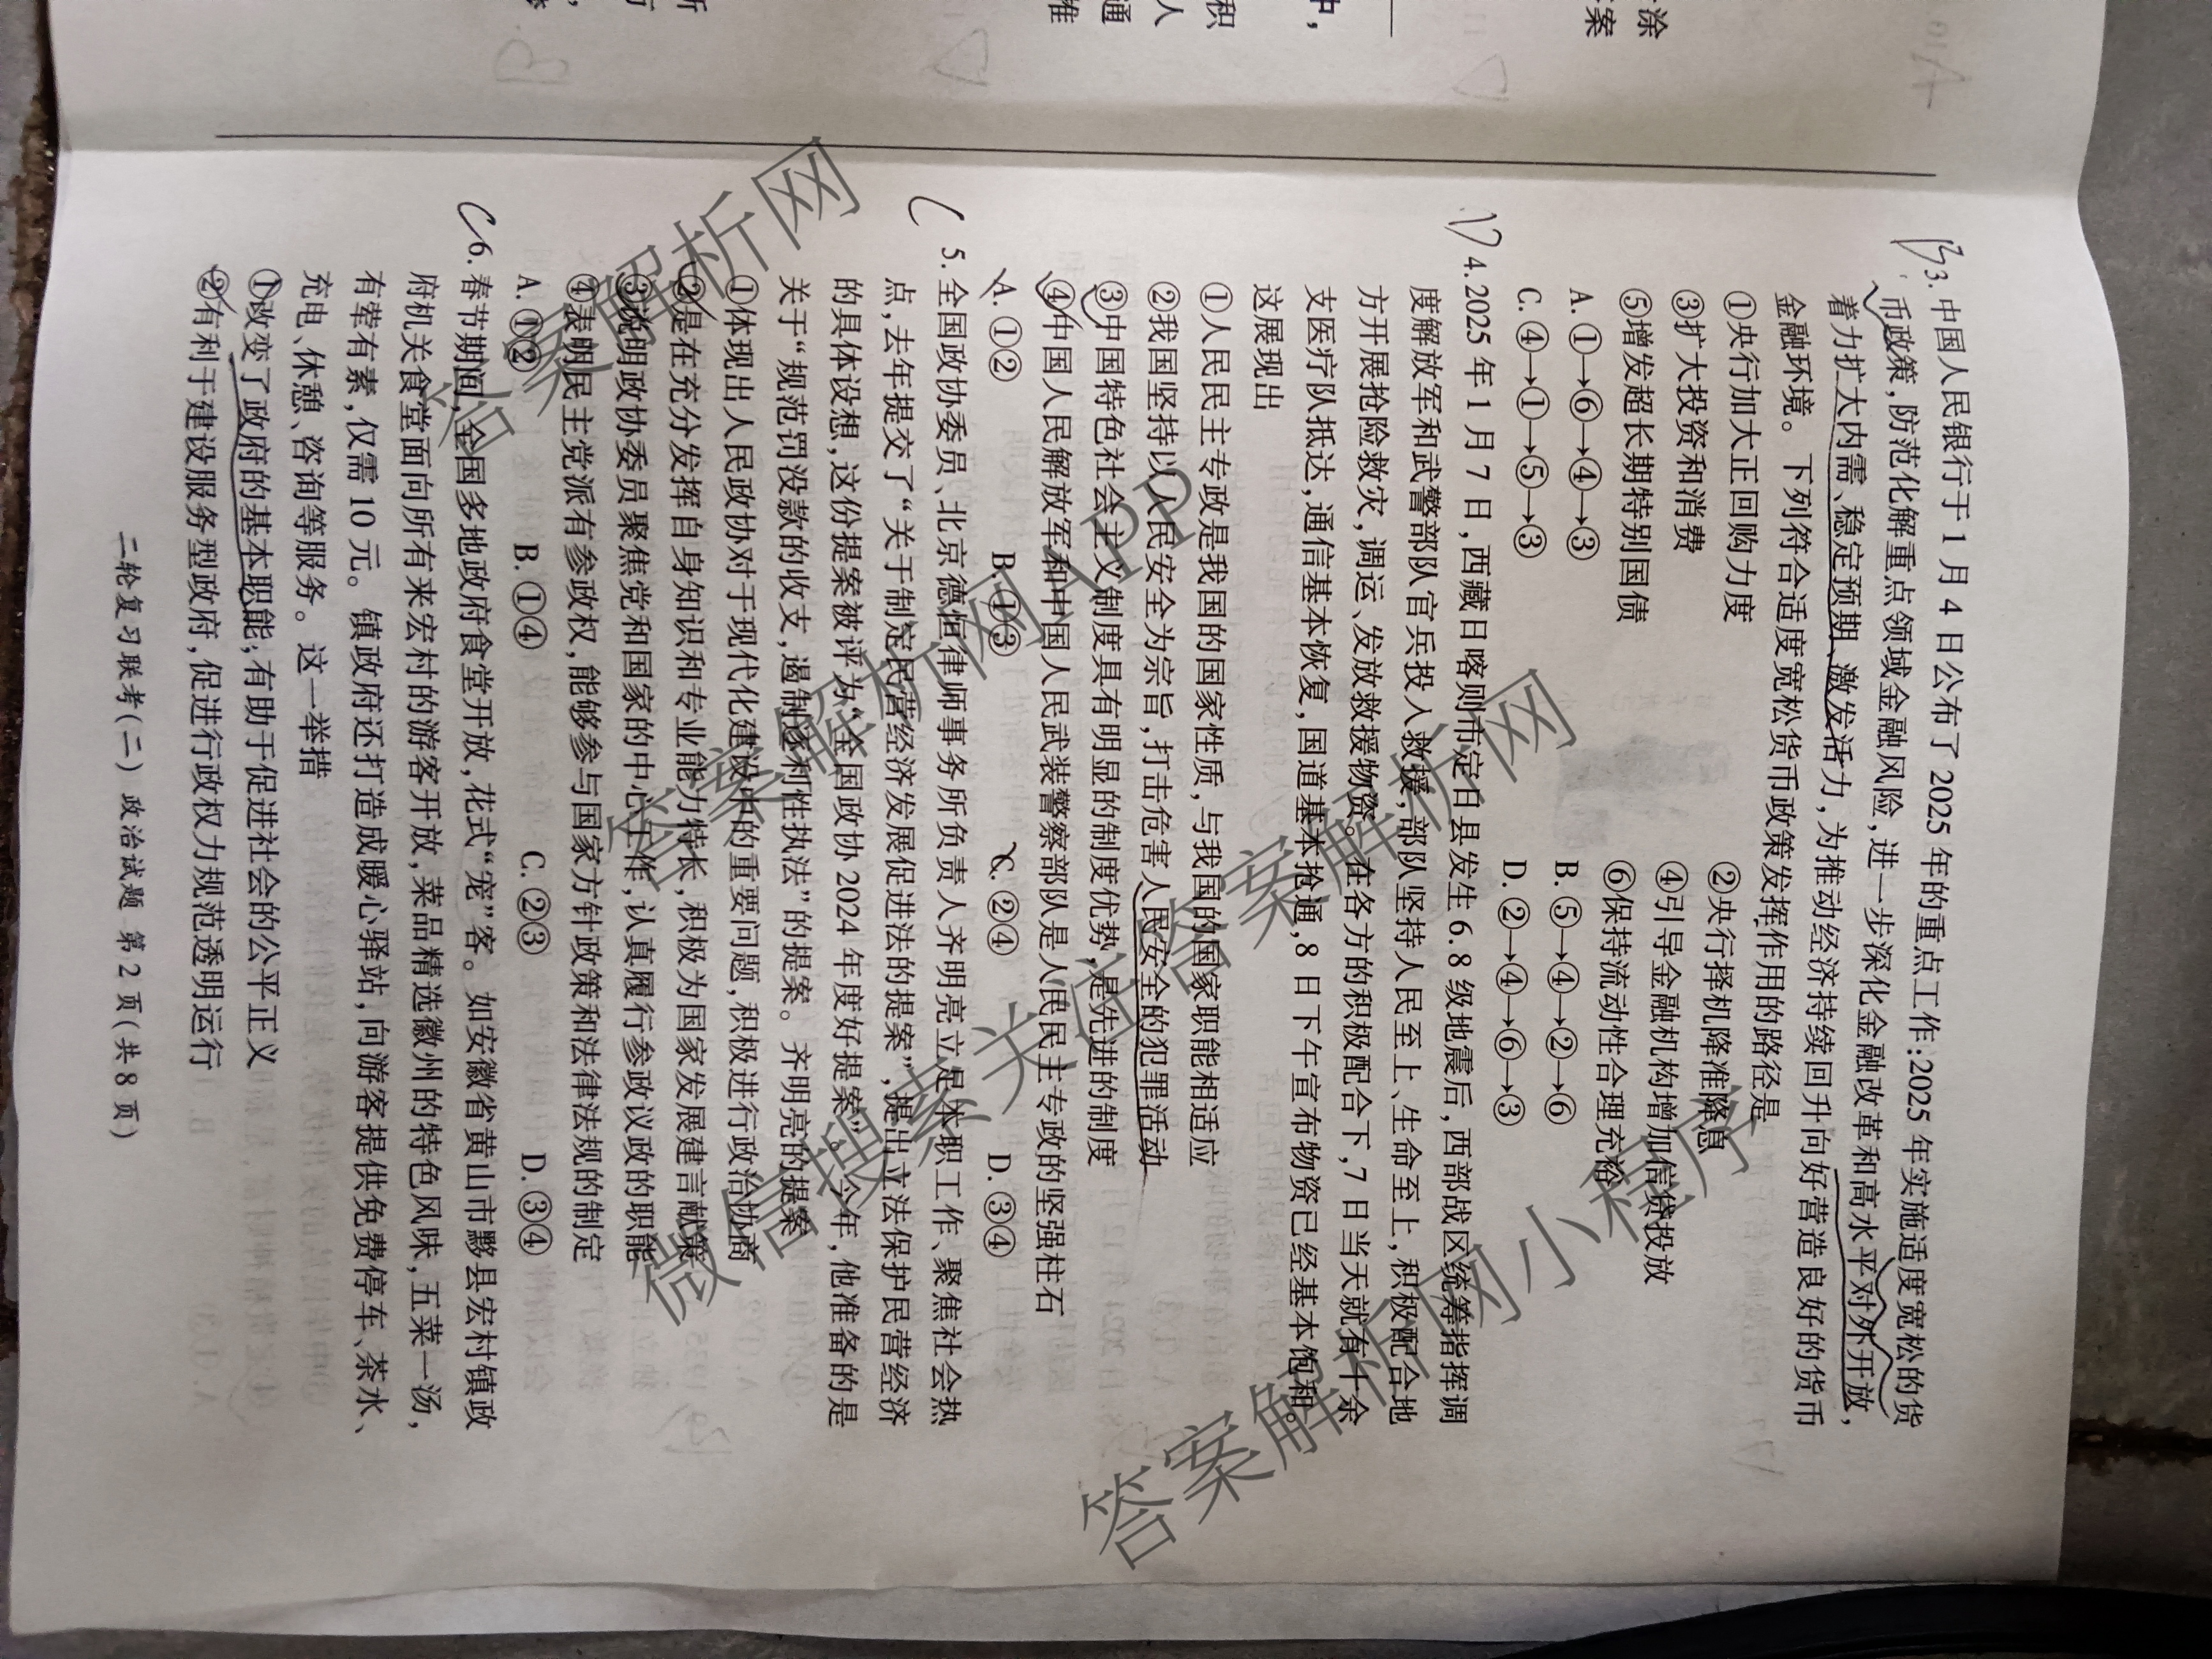 涂
答案
中，
积
人
通
推
所
行
3. 中国人民银行于1月4日公布了2025年的重点工作:2025年实施适度宽松的货
币政策,防范化解重点领域金融风险,进一步深化金融改革和高水平对外开放,
着力扩大内需、稳定预期、激发活力,为推动经济持续回升向好营造良好的货币
金融环境。下列符合适度宽松货币政策发挥作用的路径是
①央行加大正回购力度 ②央行择机降准降息
③扩大投资和消费 ④引导金融机构增加信贷投放
⑤增发超长期特别国债 ⑥保持流动性合理充裕
A. ①→⑥→④→③ B. ⑤→④→②→⑥
C. ④→①→⑤→③ D. ②→④→⑥→③
4. 2025年1月7日,西藏日喀则市定日县发生6.8级地震后,西部战区统筹指挥调
度解放军和武警部队官兵投入救援,部队坚持人民至上、生命至上,积极配合地
方开展抢险救灾,调运、发放救援物资。在各方的积极配合下,7日当天就有千余
支医疗队抵达,通信基本恢复,国道基本抢通,8日下午宣布物资已经基本饱和。
这展现出
①人民民主专政是我国的国家性质,与我国的国家职能相适应
②我国坚持以人民安全为宗旨,打击危害人民安全的犯罪活动
③中国特色社会主义制度具有明显的制度优势,是先进的制度
④中国人民解放军和中国人民武装警察部队是人民民主专政的坚强柱石
A. ①② B. ①③ C. ②④ D. ③④
C
5. 全国政协委员、北京德恒律师事务所负责人齐明亮立足本职工作、聚焦社会热
点,去年提交了“关于制定民营经济发展促进法的提案”,提出立法保护民营经济
的具体设想,这份提案被评为“全国政协2024年度好提案”。今年,他准备的是
关于“规范罚没款的收支,遏制逐利性执法”的提案。齐明亮的提案
①体现出人民政协对于现代化建设中的重要问题,积极进行政治协商
②是在充分发挥自身知识和专业能力特长,积极为国家发展建言献策
③说明政协委员聚焦党和国家的中心工作,认真履行参政议政的职能
④表明民主党派有参政权,能够参与国家方针政策和法律法规的制定
A. ①② B. ①④ C. ②③ D. ③④
C
6. 春节期间,全国多地政府食堂开放,花式“宠”客。如安徽省黄山市黟县宏村镇政
府机关食堂面向所有来宏村的游客开放,菜品精选徽州的特色风味,五菜一汤,
有荤有素,仅需10元。镇政府还打造成暖心驿站,向游客提供免费停车、茶水、
充电、休憩、咨询等服务。这一举措
①改变了政府的基本职能;有助于促进社会的公平正义
②有利于建设服务型政府,促进行政权力规范透明运行
二轮复习联考(二) 政治试题 第2页(共8页)
答案解析网
答案解析网APP
微信搜索关注答案解析网
答案解析网小程序